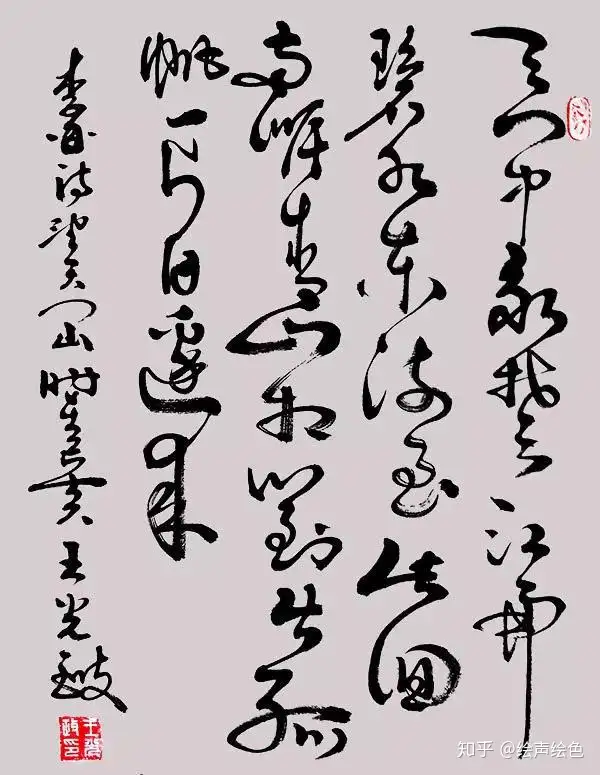 天门中断楚江開
碧水東流至此回
兩岸青山相對出孤
帆一片日邊来
李白诗望天门山时王光
知乎 @绘声绘色